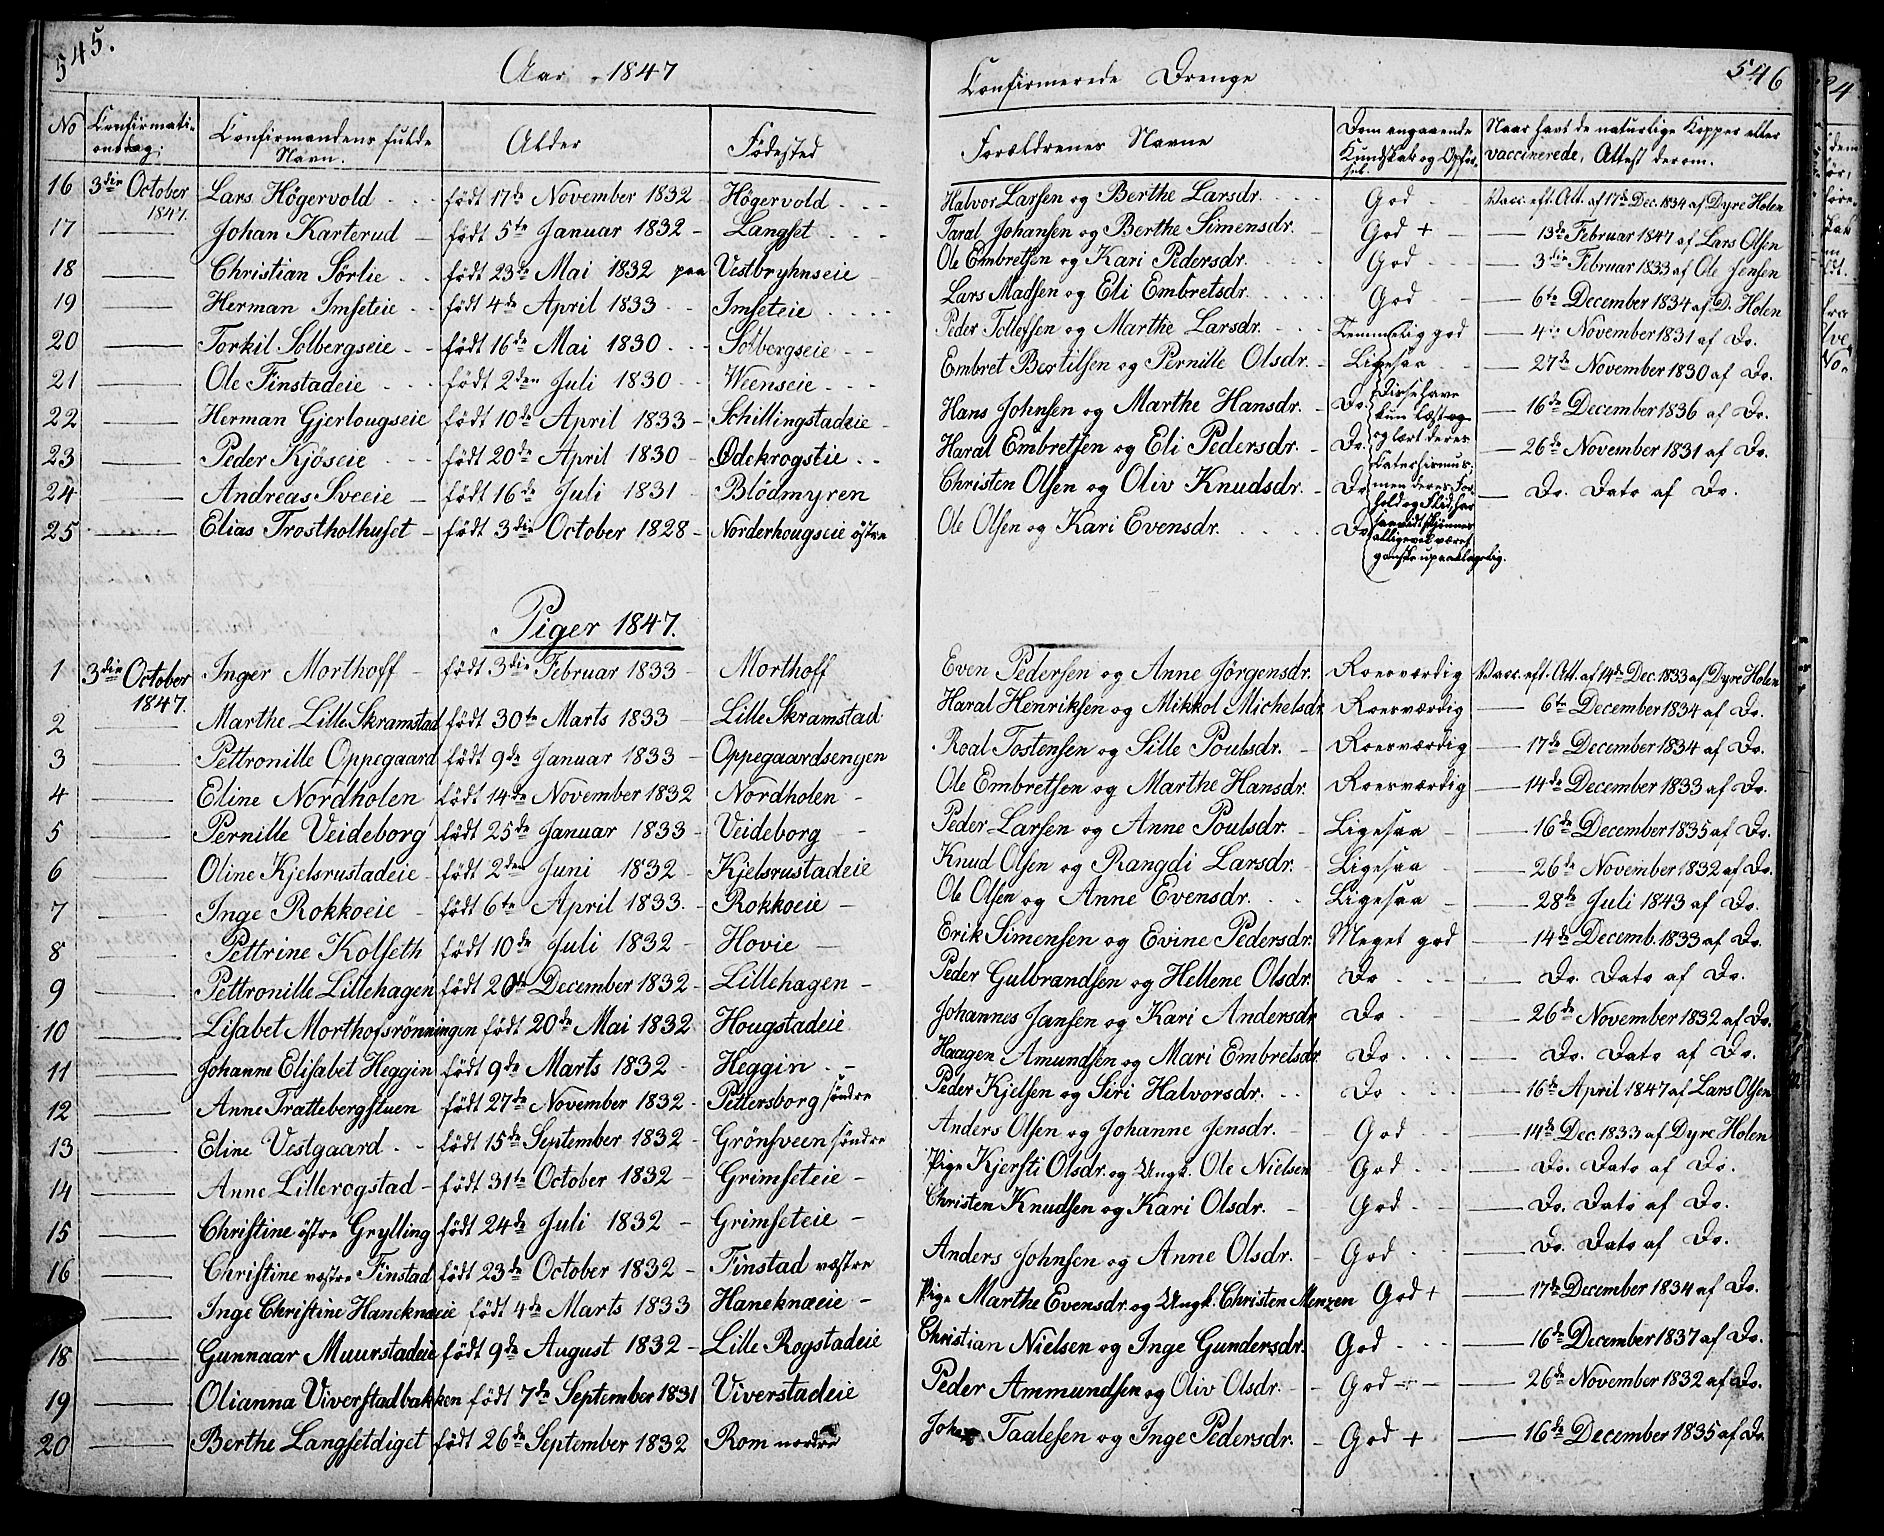 545.
Aar 1847
No Confirmationsdag. Confirmandens fulde Navn. Alder Fødested
16 3die October 1847. Lars Högervold født 17de November 1832 Högervold
17 Johan Karterud født 5te Januar 1832 Langset
18 Christian Sørlie født 23de Mai 1832 paa Vestbryhnseie
19 Herman Imseteie født 4de April 1833 Imseteie
20 Torkil Solbergseie født 16de Mai 1830 Solbergseie
21 Ole Finstadeie født 2den Juli 1830 Weenseie
22 Herman Gjerlougseie født 10de April 1833 Schillingstadeie
23 Peder Kjöseie født 20de April 1830 Ødekrogstie
24 Andreas Sveeie født 16de Juli 1831 Blödmyren
25 Elias Trostholhuset født 3die October 1828 Norderhougseie östre
Piger 1847.
1 3die October 1847. Inger Morthoff født 3die Februar 1833 Morthoff
2 Marthe Lille Skramstad født 30te Marts 1833 Lille Skramstad
3 Pettronille Oppegaard født 9de Januar 1833 Oppegaardsengen
4 Eline Nordholen født 14de November 1832 Nordholen
5 Pernille Veideborg født 25de Januar 1833 Veideborg
6 Oline Kjelsrustadeie født 2den Juni 1832 Kjelsrustadeie
7 Inge Rokkoeie født 6te April 1833. Rokkoeie
8 Pettrine Kolseth født 10de Juli 1832 Hovie
9 Pettronille Lillehagen født 20de December 1832 Lillehagen
10 Lisabet Morthofsrönningen født 20de Mai 1832 Hougstadeie
11 Johanne Elisabet Heggin født 9de Marts 1832 Heggin
12 Anne Trattebergstuen født 27de November 1832 Pettersborg söndre
13 Eline Vestgaard født 15de September 1832 Grönsveen söndre
14 Anne Lillerogstad født 31te October 1832 Grimseteie
15 Christine östre Grylling født 24de Juli 1832 Grimseteie
16 Christine væstre Finstad født 23de October 1832 Finstad væstre
Inge Christine Haneknæie født 4de Marts 1833 Haneknæie
18 Gunnaar Muurstadeie født 9de August 1832 Lille Rogstadeie
19 Olianna Viverstadbakken født 7de September 1831 Viverstadeie
20 Berthe Langsetdiget født 26de September 1832 Rom nordre
546
Confirmerede Drenge
Forældrenes Navne Dom angaaende Kundskab og Opførsel. Naar havt de naturlige Kopper eller vaccinerede, Attest derom.
Halvor Larsen og Berthe Larsdr. God Vacc. eft. Att. af 17de Dec. 1834 af Dyre Holen
Taral Johansen og Berthe Simensdr. God + 13de Februar 1847 af Lars Olsen
Ole Embretsen og Kari Pedersdr. God 3die Februar 1833 af Ole Jensen
Lars Madsen og Eli Embretsdr. God 6te December 1834 af D. Holen
Peder Tollefsen og Marthe Larsdr. Temmelig god 4de November 1831 af Do.
Embret Bertilsen og Pernille Olsdr. Ligesaa 27de November 1830 af Do.
Hans Johnsen og Marthe Hansdr. Do 16de December 1836 af Do.
Haral Embretsen og Eli Pedersdr. Do 26de November 1831 af Do.
Christen Olsen og Oliv Knudsdr. Do Do. Dato af Do.
Ole Olsen og Kari Evensdr. Do
Disse have
kun læst og
og lært deres
Katechismus,
men deres For-
hold og Flid har
saavidt skjønnes
alligevel været
ganske upaaklagelig.
Even Pedersen og Anne Jørgensdr. Roesværdig Vacc. eft. Att. af 14de Dec. 1833 af Dyre Holen
Haral Henriksen og Mikkol Michelsdr. Roesværdig 6te December 1834 af Do.
Roal Tostensen og Sille Poulsdr. Roesværdig 17de December 1834 af Do.
Ole Embretsen og Marthe Hansdr. Roesværdig 14de December 1833 af Do.
Peder Larsen og Anne Poulsdr. Ligesaa 16de December 1835 af Do.
Knud Olsen og Rangdi Larsdr. Ligesaa 26de November 1832 af Do.
Ole Olsen og Anne Evensdr. Ligesaa 28de Juli 1843 af Do.
Erik Simensen og Evine Pedersdr. Meget god 14de Decemb. 1833 af Do.
Peder Gulbrandsen og Hellene Olsdr. Do Do. Dato af Do.
Johannes Jansen og Kari Andersdr Do 26de November 1832 af Do.
Haagen Amundsen og Mari Embretsdr Do Do. Dato af Do.
Peder Kjelsen og Siri Halvorsdr. Do 16de April 1847 af Lars Olsen
Anders Olsen og Johanne Jensdr. God 14de Dec. 1833 af Dyre Holen
Pige Kjersti Olsdr. og Ungk. Ole Nielsen God Do. Dato af Do.
Christen Knudsen og Kari Olsdr. God Do. Dato af Do.
Anders Johnsen og Anne Olsdr. God Do. Dato af Do.
Pige Marthe Evensdr. og Ungk. Christen Menzen God + 17de December 1834 af Do.
Christian Nielsen og Inge Gundersdr. God 16de December 1837 af Do.
Peder Ammundsen og Oliv Olsdr. God 26de November 1832 af Do.
Johan Taalesen og Inge Pedersdr. God + 16de December 1835 af Do